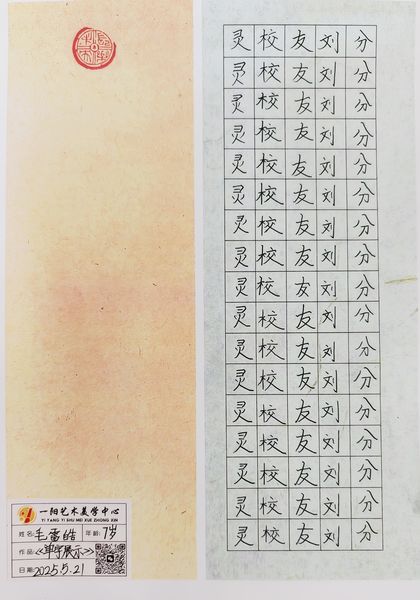 灵校友刘分
灵校友刘分
灵校友刘分
灵校友刘分
灵校友刘分
灵校友刘分
灵校友刘分
灵校友刘分
灵校友刘分
灵校友刘分
灵校友刘分
灵校友刘分
灵校友刘分
灵校友刘分
灵校友刘分
灵校友刘分
灵校友刘分
一阳艺术美学中心
YI YANG YI SHU MEI XUE ZHONG XIN
姓名:毛雷皓 年龄:7岁
作品:《单字展示》
日期:2025.5.21